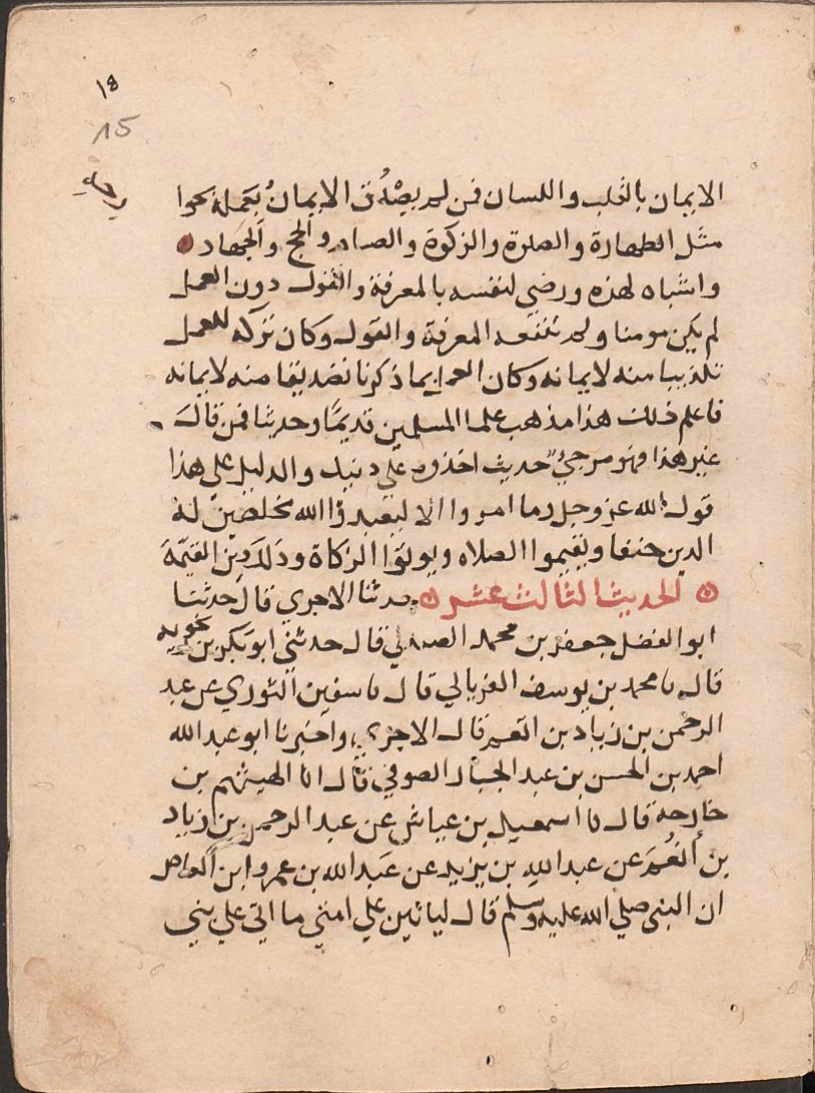 ١٥
15
الايمان بالقلب واللسان فمن لم يصدق الايمانُ بعمله بحوا
مثل الطهارة والصلاة والزكوة والصيام والحج والجهاد
واشباه لهذه ورضي لنفسه بالمعرفة والقول دون العمل
لم يكن مومنا ولم تنفعه المعرفة والقول وكان تركه للعمل
تكذيبا منه لايمانه وكان العمل بما ذكرنا تصديقا منه لايمانه
فاعلم ذلك هذا مذهب علما المسلمين قديمًا وحديثا فمن قال
غير هذا فهو مرجيء حديث احذره علي دينك والدليل علي هذا
قول الله عز وجل وما امروا الا ليعبدوا الله مخلصين له
الدين حنفا ويقيموا الصلاه ويوتوا الزكاة وذلك دين القيّمة
الحديث الثالث عشر حدثنا الاجري قال حدثنا
ابو الفضل جعفر بن محمد الصندلي قال حدثني ابو بكر بن
قال نا محمد بن يوسف الفريابي قال نا سفين الثوري عن عبد
الرحمن بن زياد بن انعم قال الاجري واخبرنا ابو عبد الله
احمد بن الحسن بن عبد الجبار الصوفي قال انا الهيثم بن
خارجة قال نا اسمعيل بن عياش عن عبد الرحمن بن زياد
بن أنعُم عن عبد الله بن يزيد عن عبد الله بن عمرو ابن العاص
ان النبي صلي الله عليه وسلم قال لياتين علي امتي ما اتي علي بني